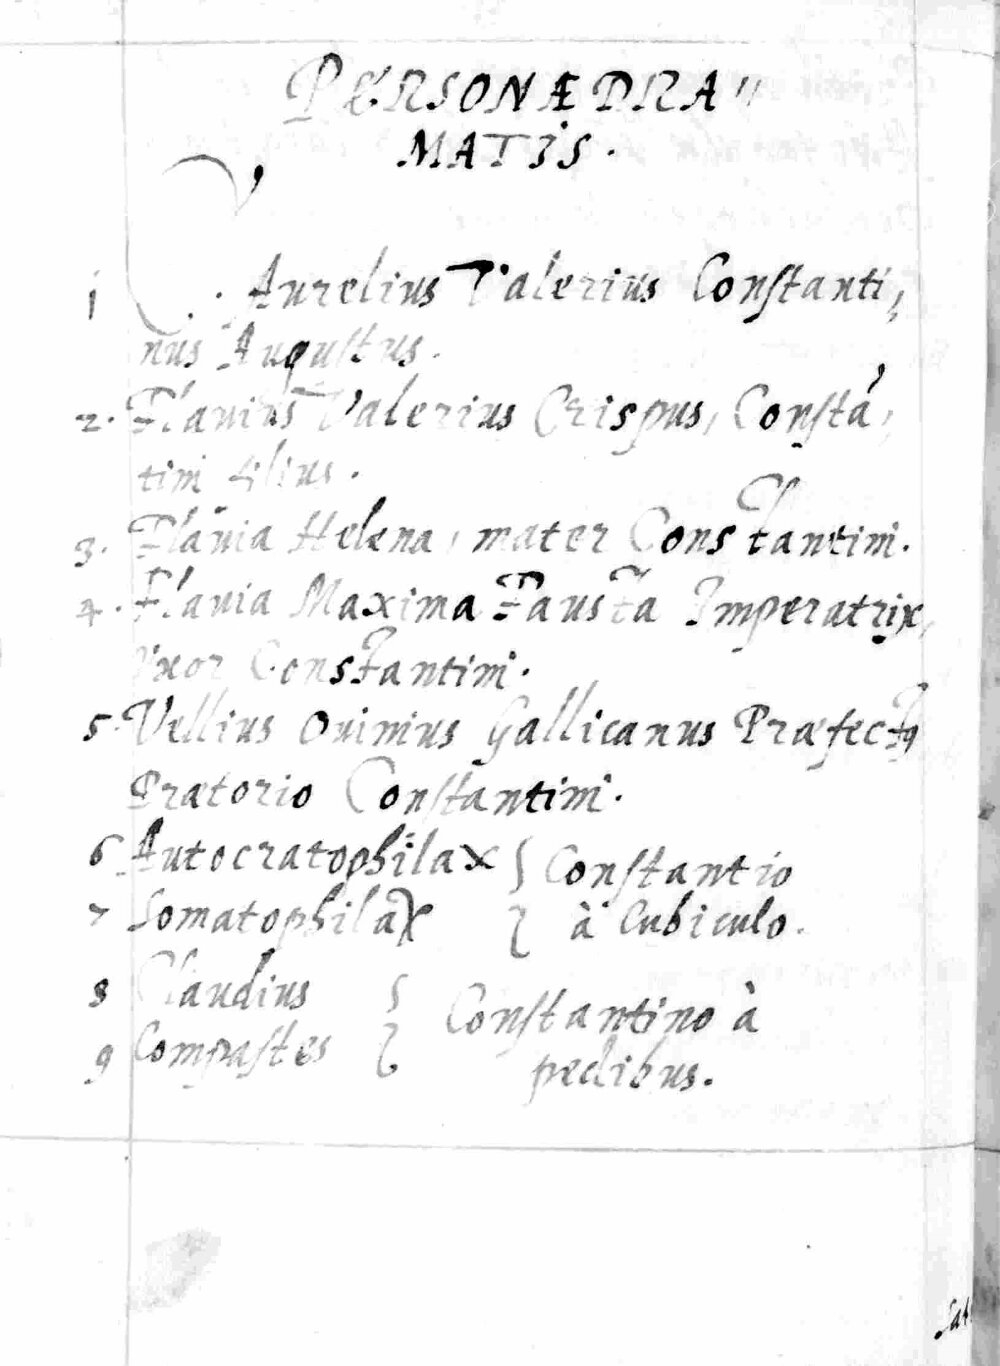 PERSONÆ DRA"
MATIS.
1 . Aurelius Valerius Constanti,
nus Augustus.
2. Flauius Valerius Crispus, Constã,
tini filius.
3. Flauia Helena, mater Constantini.
4. Flauia Maxima Fausta Imperatrix,
Vxor Constantini.
5. Vellius Ouinius Gallicanus Præfectꝯ
Prætorio Constantini.
6 Autocratophilax } Constantio
7 Somatophilax } à Cubiculo.
8 Claudius } Constantino à
9 Compastes } pedibus.